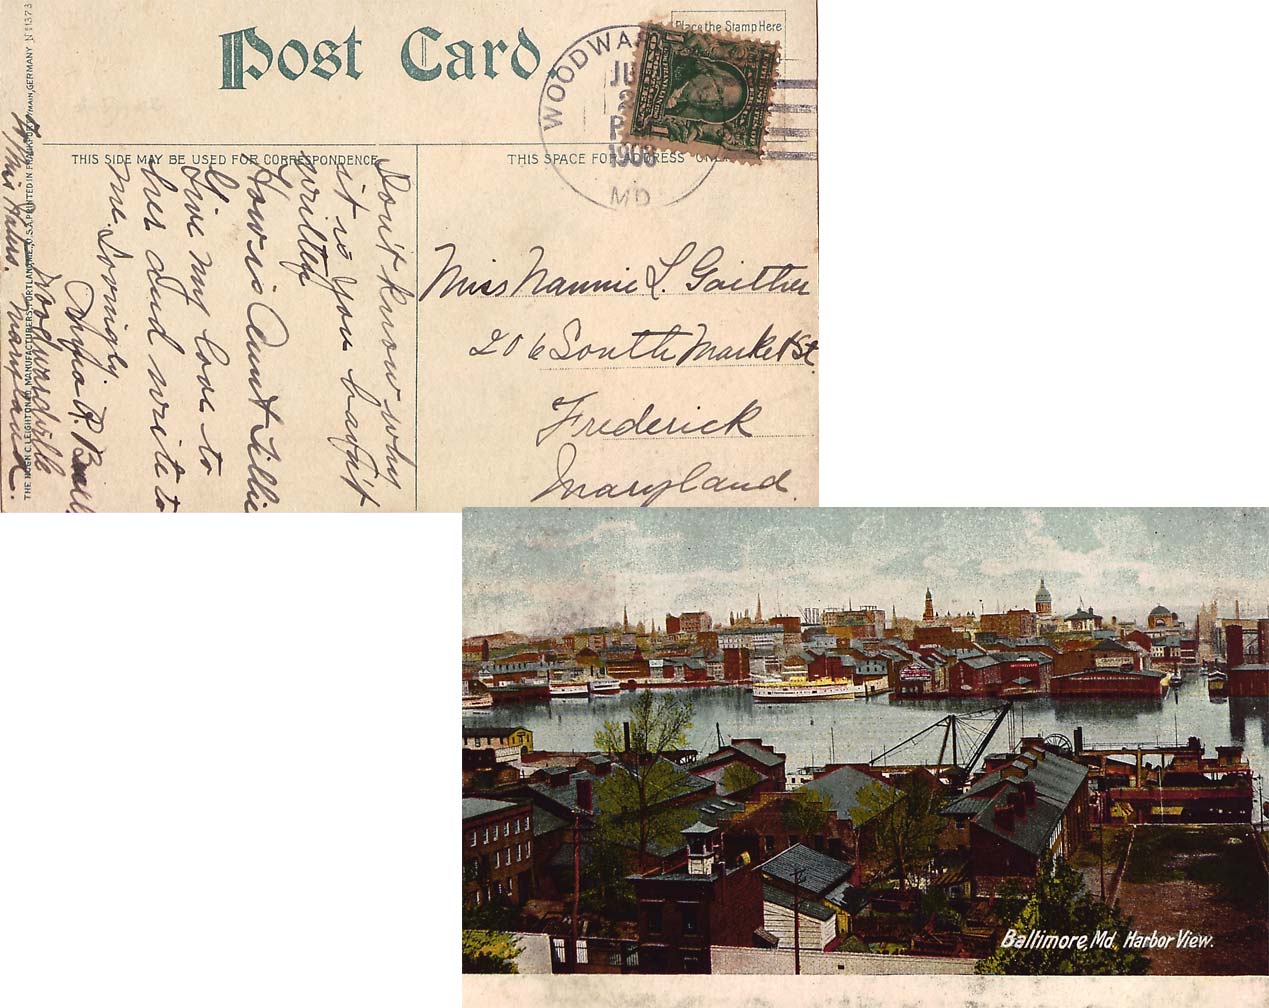 Post Card.
Place the Stamp Here
WOODWA
JU
2
P
1908
MD
THIS SIDE MAY BE USED FOR CORRESPONDENCE
THIS SPACE FOR ADDRESS ONL
Don't know why
it is you haven't
written
How is Aunt Lillie
Give my love to
her and write to
me. Lovingly
R. Buell
Woodwardville
Maryland.
THE HUGH C. LEIGHTON CO., MANUFACTURERS, PORTLAND, ME., U.S.A. PRINTED IN FRANKFORT/MAIN, GERMANY N 11373
Miss Nannie L. Gaither
206 South Market St
Frederick
Maryland.
Baltimore, Md. Harbor View.